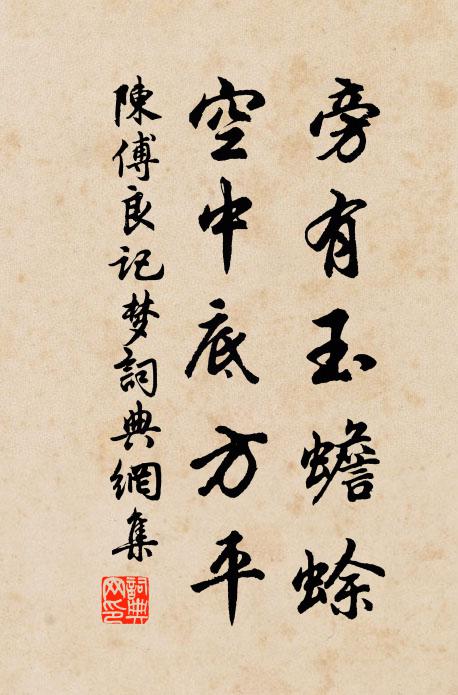 旁有玉蟾蜍
空中底方平
陳傅良记梦詞典網集
詞典网印